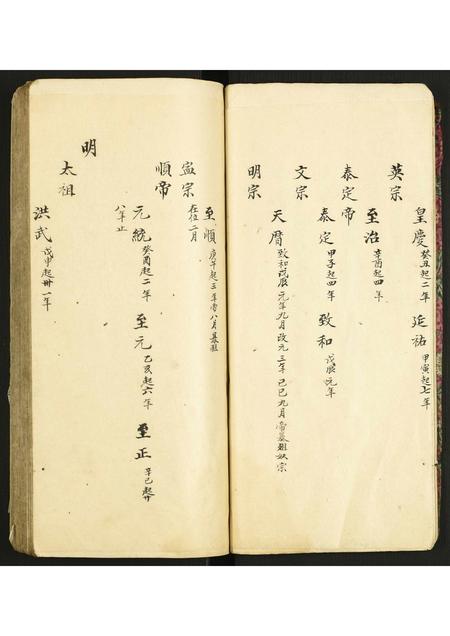 皇慶 癸丑起二年 延祐 甲寅起七年
英宗
至治 辛酉起四年
泰定帝
泰定 甲子起四年 致和 戊辰元年
文宗
天曆 致和戊辰元年九月改元三年己巳九月帝
明宗
至順 庚午起三年帝八月
寧宗 在位一月
順帝
元統 癸酉起二年 至元 乙亥起六年 至正 辛巳起廿
八年止
明
太祖
洪武 戊申起卅一年